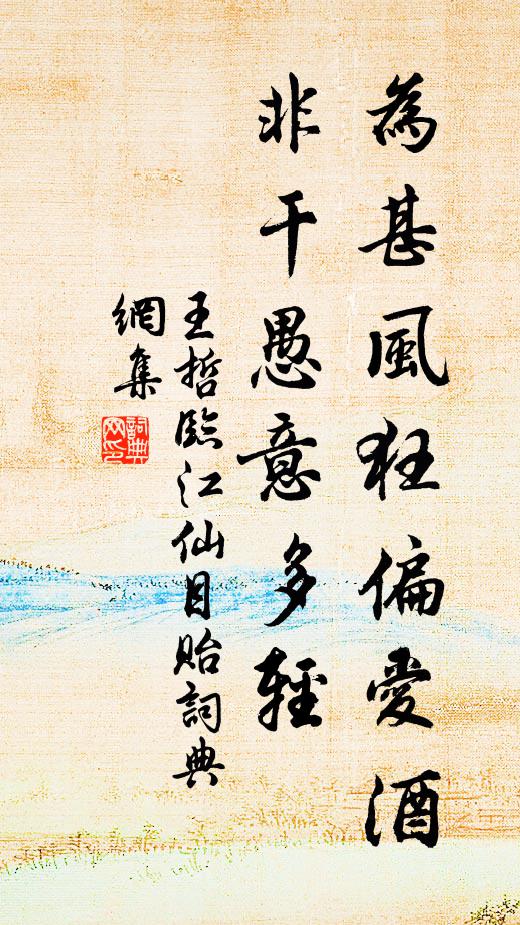 為甚風狂偏愛酒
非干愚意多輕
王哲臨江仙目貽詞典
網集
詞典
网印